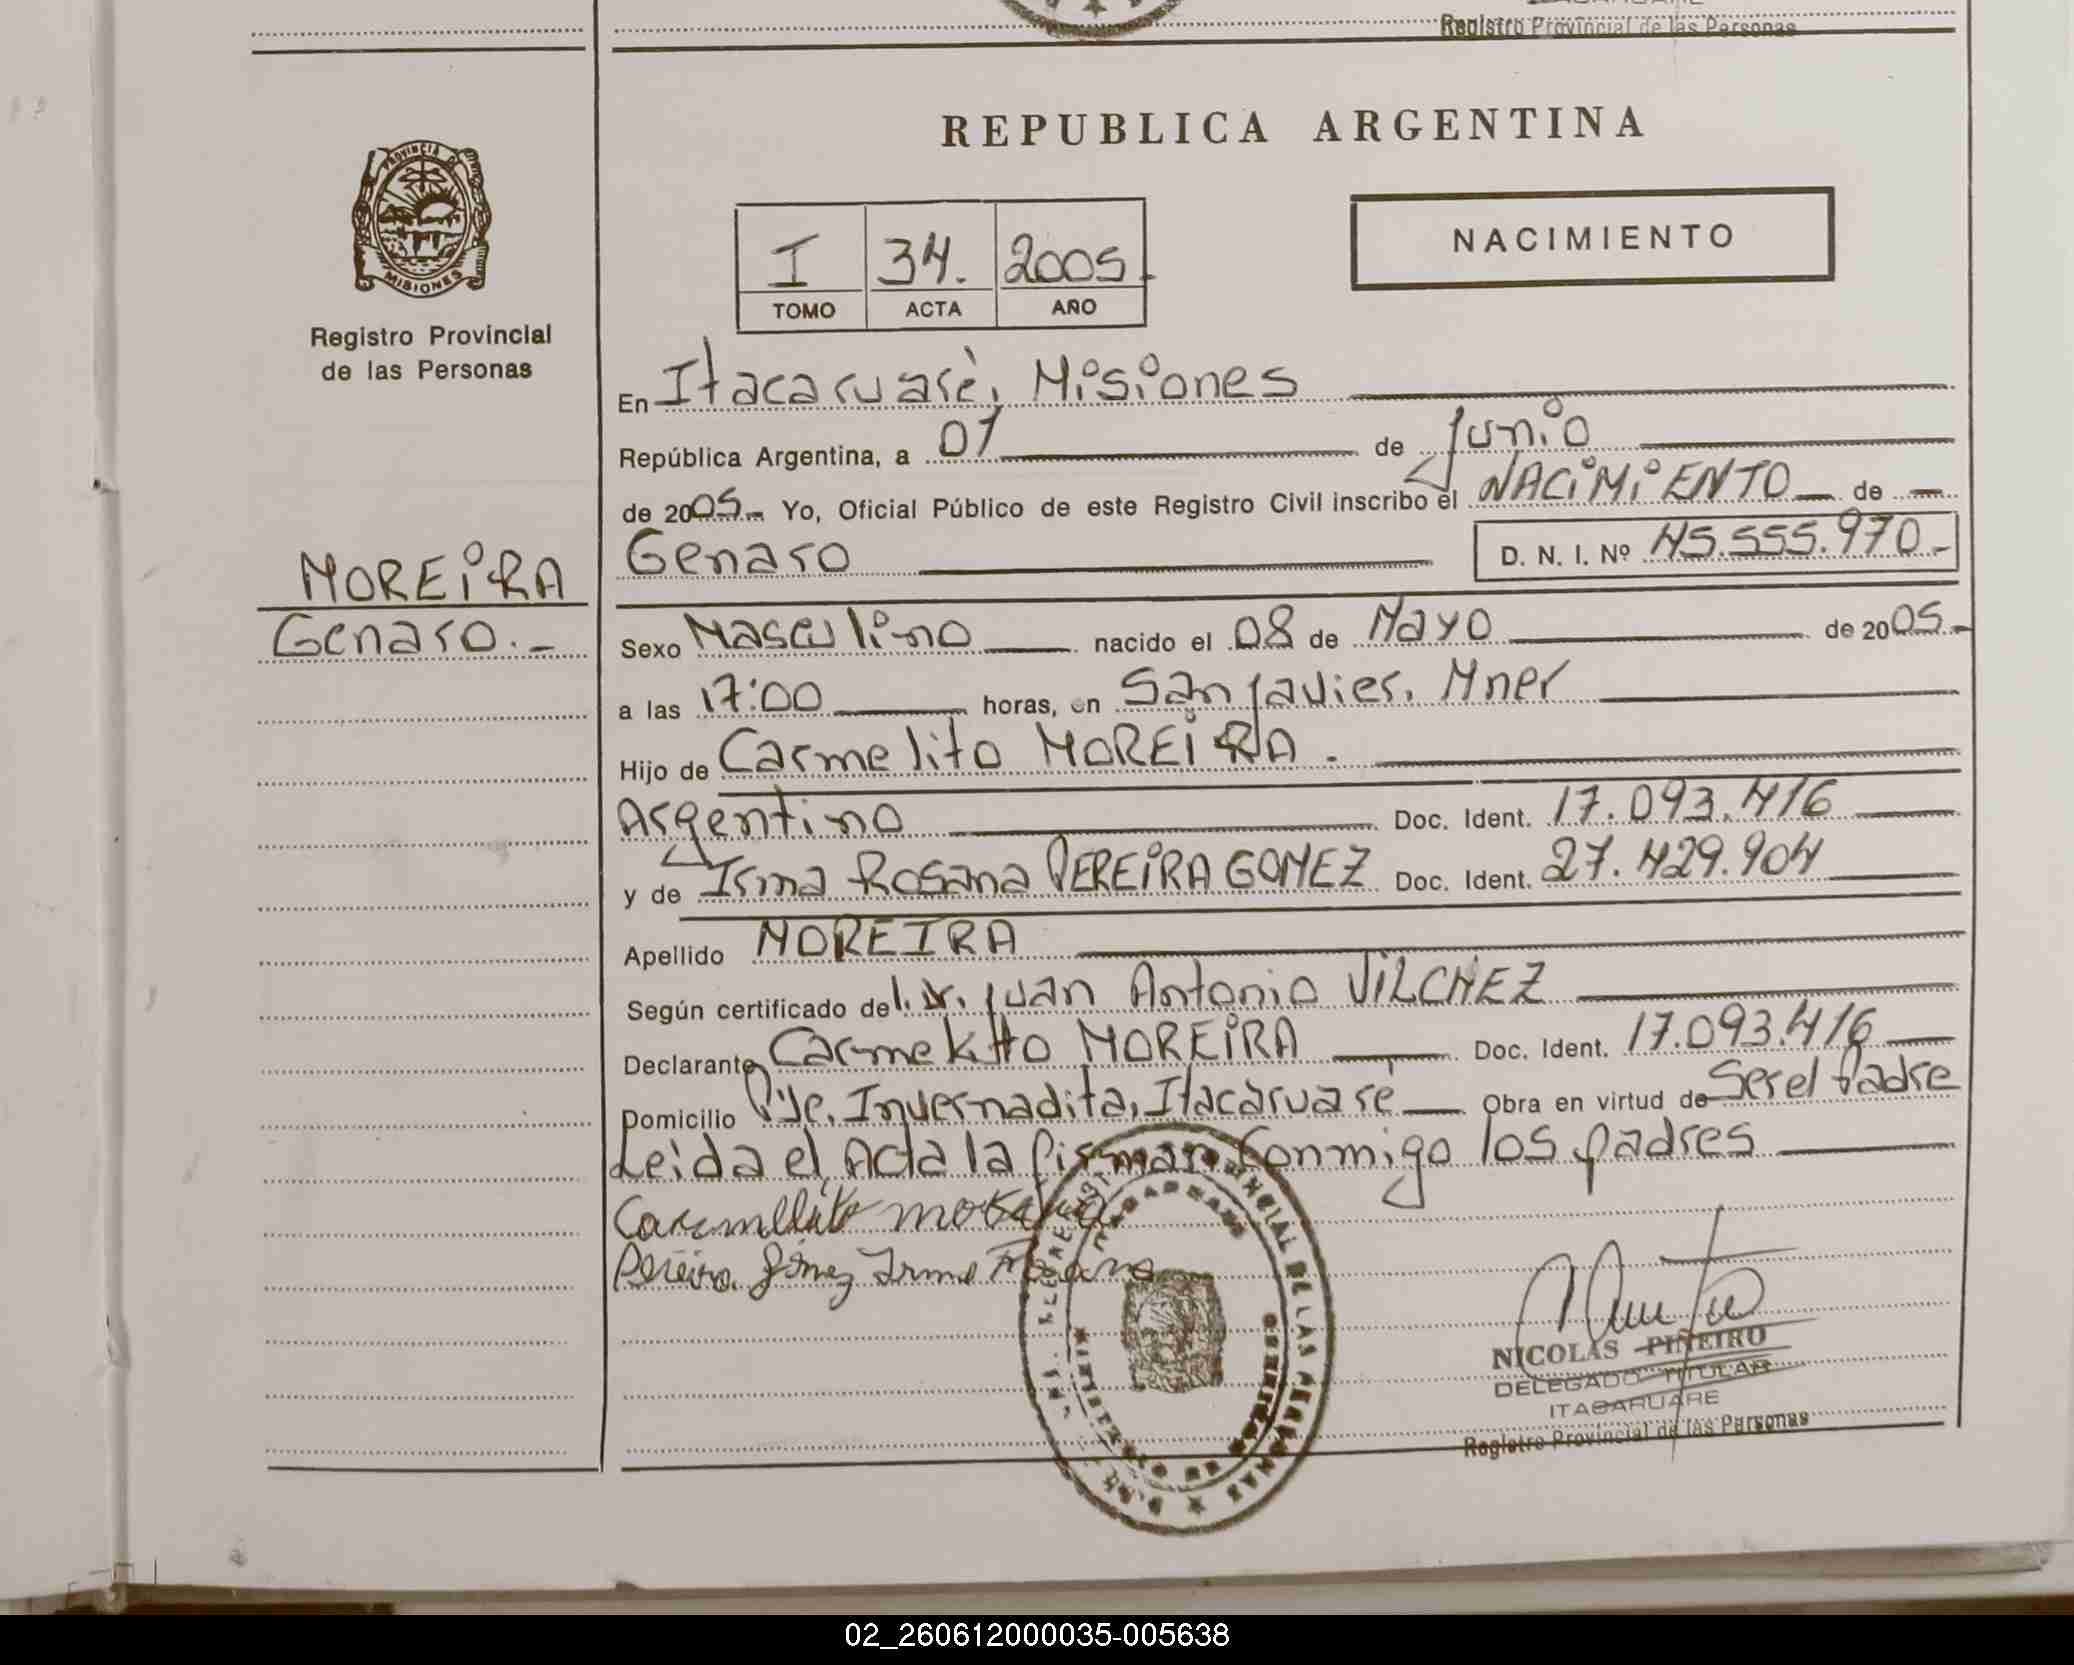 Registro Provincial de las Personas
PROVINCIA DE
MISIONES
Registro Provincial
de las Personas
MOREIRA
Genaro.-
REPUBLICA ARGENTINA
I 34. 2005.
TOMO ACTA AÑO
NACIMIENTO
En Itacaruaré, Misiones
República Argentina, a 01 de Junio
de 2005.- Yo, Oficial Público de este Registro Civil inscribo el NACIMIENTO de
Genaro D. N. I. Nº 45.555.970.-
Sexo Masculino nacido el 08 de Mayo de 2005.-
a las 17:00 horas, en San Javier. Mner
Hijo de Carmelito MOREIRA.
Argentino Doc. Ident. 17.093.416
y de Irma Rosana PEREIRA GOMEZ Doc. Ident. 27.429.904
Apellido MOREIRA
Según certificado del. Dr. Juan Antonio VILCHEZ
Declarante Carmelito MOREIRA Doc. Ident. 17.093.416
Domicilio Pje. Invernadita, Itacaruaré Obra en virtud de Ser el Padre
Leida el Acta la firman Conmigo los padres
Carmelito moreira
Pereira Gómez Irma Rosana
NICOLAS PIÑEIRO
DELEGADO TITULAR
ITACARUARE
Registro Provincial de las Personas
02_260612000035-005638